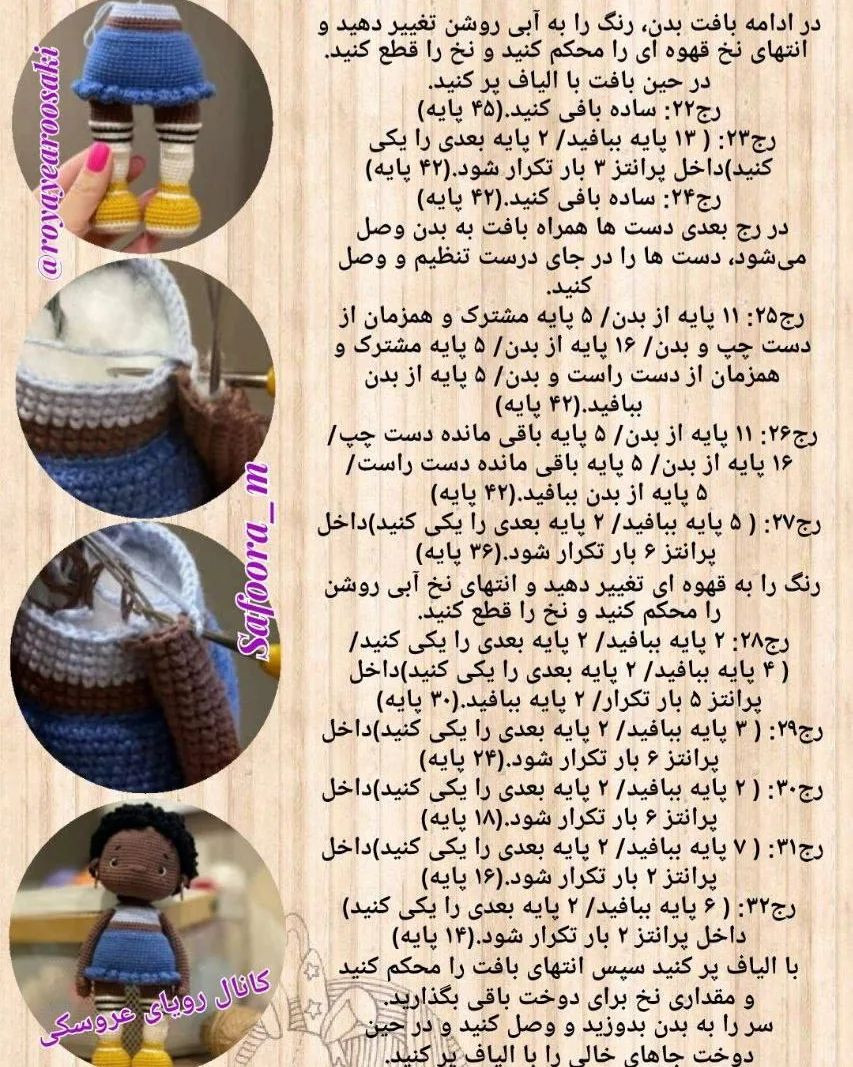 در ادامه بافت بدن، رنگ را به آبی روشن تغییر دهید و
انتهای نخ قهوه ای را محکم کنید و نخ را قطع کنید.
در حین بافت با الیاف پر کنید.
رج۲۲: ساده بافی کنید.(۴۵ پایه)
رج۲۳: ( ۱۳ پایه ببافید/ ۲ پایه بعدی را یکی
کنید)داخل پرانتز ۳ بار تکرار شود.(۴۲ پایه)
رج۲۴: ساده بافی کنید.(۴۲ پایه)
در رج بعدی دست ها همراه بافت به بدن وصل
می‌شود، دست ها را در جای درست تنظیم و وصل
کنید.
رج۲۵: ۱۱ پایه از بدن/ ۵ پایه مشترک و همزمان از
دست چپ و بدن/ ۱۶ پایه از بدن/ ۵ پایه مشترک و
همزمان از دست راست و بدن/ ۵ پایه از بدن
ببافید.(۴۲ پایه)
رج۲۶: ۱۱ پایه از بدن/ ۵ پایه باقی مانده دست چپ/
۱۶ پایه از بدن/ ۵ پایه باقی مانده دست راست/
۵ پایه از بدن ببافید.(۴۲ پایه)
رج۲۷: ( ۵ پایه ببافید/ ۲ پایه بعدی را یکی کنید)داخل
پرانتز ۶ بار تکرار شود.(۳۶ پایه)
رنگ را به قهوه ای تغییر دهید و انتهای نخ آبی روشن
را محکم کنید و نخ را قطع کنید.
رج۲۸: ۲ پایه ببافید/ ۲ پایه بعدی را یکی کنید/
( ۴ پایه ببافید/ ۲ پایه بعدی را یکی کنید)داخل
پرانتز ۵ بار تکرار/ ۲ پایه ببافید.(۳۰ پایه)
رج۲۹: ( ۳ پایه ببافید/ ۲ پایه بعدی را یکی کنید)داخل
پرانتز ۶ بار تکرار شود.(۲۴ پایه)
رج۳۰: ( ۲ پایه ببافید/ ۲ پایه بعدی را یکی کنید)داخل
پرانتز ۶ بار تکرار شود.(۱۸ پایه)
رج۳۱: ( ۷ پایه ببافید/ ۲ پایه بعدی را یکی کنید)داخل
پرانتز ۲ بار تکرار شود.(۱۶ پایه)
رج۳۲: ( ۶ پایه ببافید/ ۲ پایه بعدی را یکی کنید)
داخل پرانتز ۲ بار تکرار شود.(۱۴ پایه)
با الیاف پر کنید سپس انتهای بافت را محکم کنید
و مقداری نخ برای دوخت باقی بگذارید.
سر را به بدن بدوزید و وصل کنید و در حین
دوخت جاهای خالی را با الیاف پر کنید.
@royayearoosaki
Safoora_m
کانال رویای عروسکی